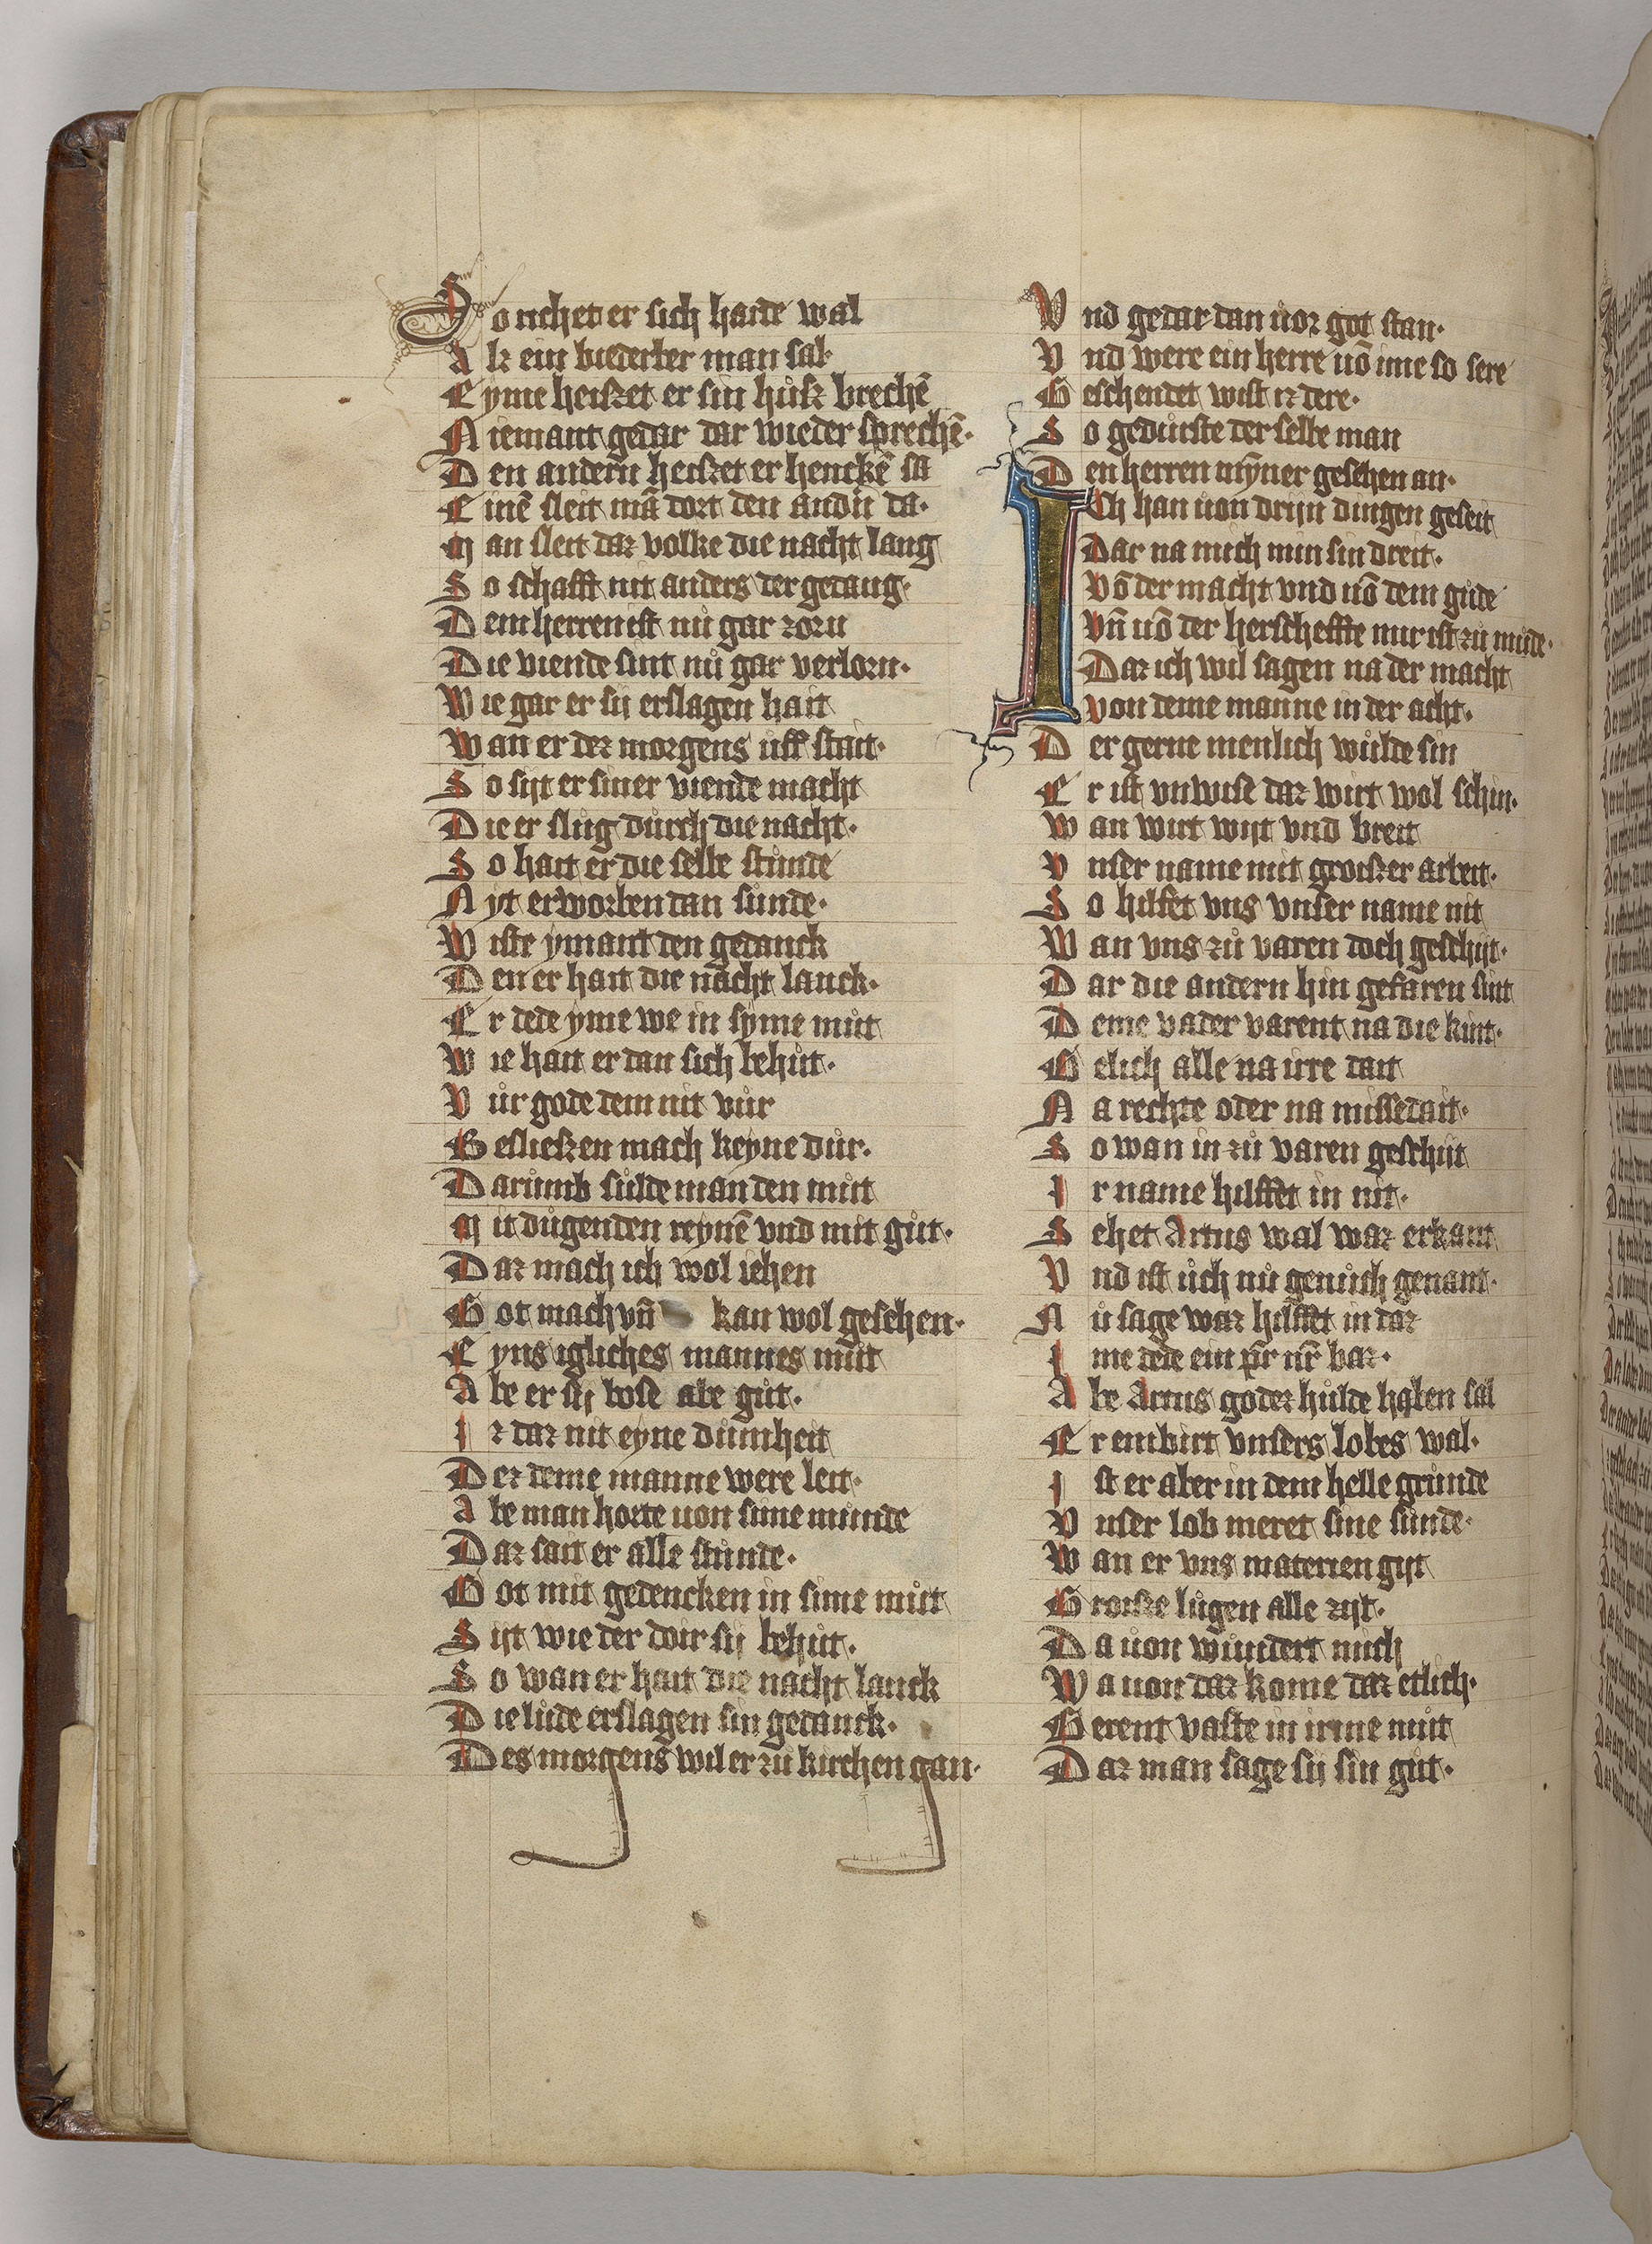 So richet er sich harde wal
Alz ein biederber man sal·
Eyme heiszet er sin hůsz brechē
Niemant gedar dar wieder sprechē·
Den andern heiszet er henckē sa
Einē sleit mā dort den andn̄ da·
Man sleit daz volke die nacht lang
So schafft nit anders der gedang·
Dem herren ist nů gar zorn
Die viende sint nů gar verlorn·
Wie gar er sij erslagen hait
Wan er dez morgens uff stait·
So sijt er siner viende macht
Die er slůg důrch die nacht·
So hait er die selbe stůnde
Nijt erworben dan sůnde·
Wiste ymant den gedanck
Den er hait die nacht lanck·
Er dede yme we in syme můt
Wie hait er dan sich behůt·
Vůr gode dem nit vůr
Geslieszen mach keyne důr·
Darůmb sůlde man den můt
Mit důgenden reynē vnd mit gůt·
Daz mach ich wol iehen
Got mach vn̄ kan wol gesehen·
Eyns igliches mannes můt
Abe er sij bose abe gůt·
Iz daz nit eyne důmheit
Dez deme manne were leit·
Abe man horte uon sime můnde
Daz sait er alle stůnde·
Got mit gedencken in sime můt
Sijt wie der doir sij behůt·
So wan er hait die nacht lanck
Die lůde erslagen sin gedanck·
Des morgens wil er zů kirchen gan·
Vnd gedar dan uor got stan·
Vnd were ein herre uō ime so sere
Geschendet wist iz dere·
So gedůrste der selbe man
Den herren nȳner gesehen an·
Ich han uon drijn dingen geseit
Dar na mich min sin dreit·
Vō der macht vnd uō dem gůde
Vn̄ uō der herscheffte mir ist zů můde·
Daz ich wil sagen na der macht
Von deme manne in der acht·
Der gerne menlich wůlde sin
Er ist vnwise daz wirt wol schin·
Wan wirt wijt vnd breit
Vnser name mit groiszer arbeit·
So hilfet vns vnser name nit
Wan vns zů varen doch geschijt·
Dar die andern hin gefaren sint
Deme vader varent na die kint·
Gelich alle na irre dait
Na rechte oder na missedait·
So wan in zů varen geschiit
Ir name hilffet in nit·
Sehet Artus wal waz erkant
Vnd ist ůch nů genůch genant·
Nů sage waz hilffet in daz
Ime dede ein pr̄ nr̄ baz·
Abe Artus godez hůlde haben sal
Er enbirt vnsers lobes wal·
Ist er aber in dem helle grůnde
Vnser lob meret sine sůnde·
Wan er vns materien gijt
Groisze lůgen alle zijt·
Da uon wůndert mich
Wa uon daz kome daz etlich·
Gerent vaste in irme můt
Daz man sage sij sin gůt·